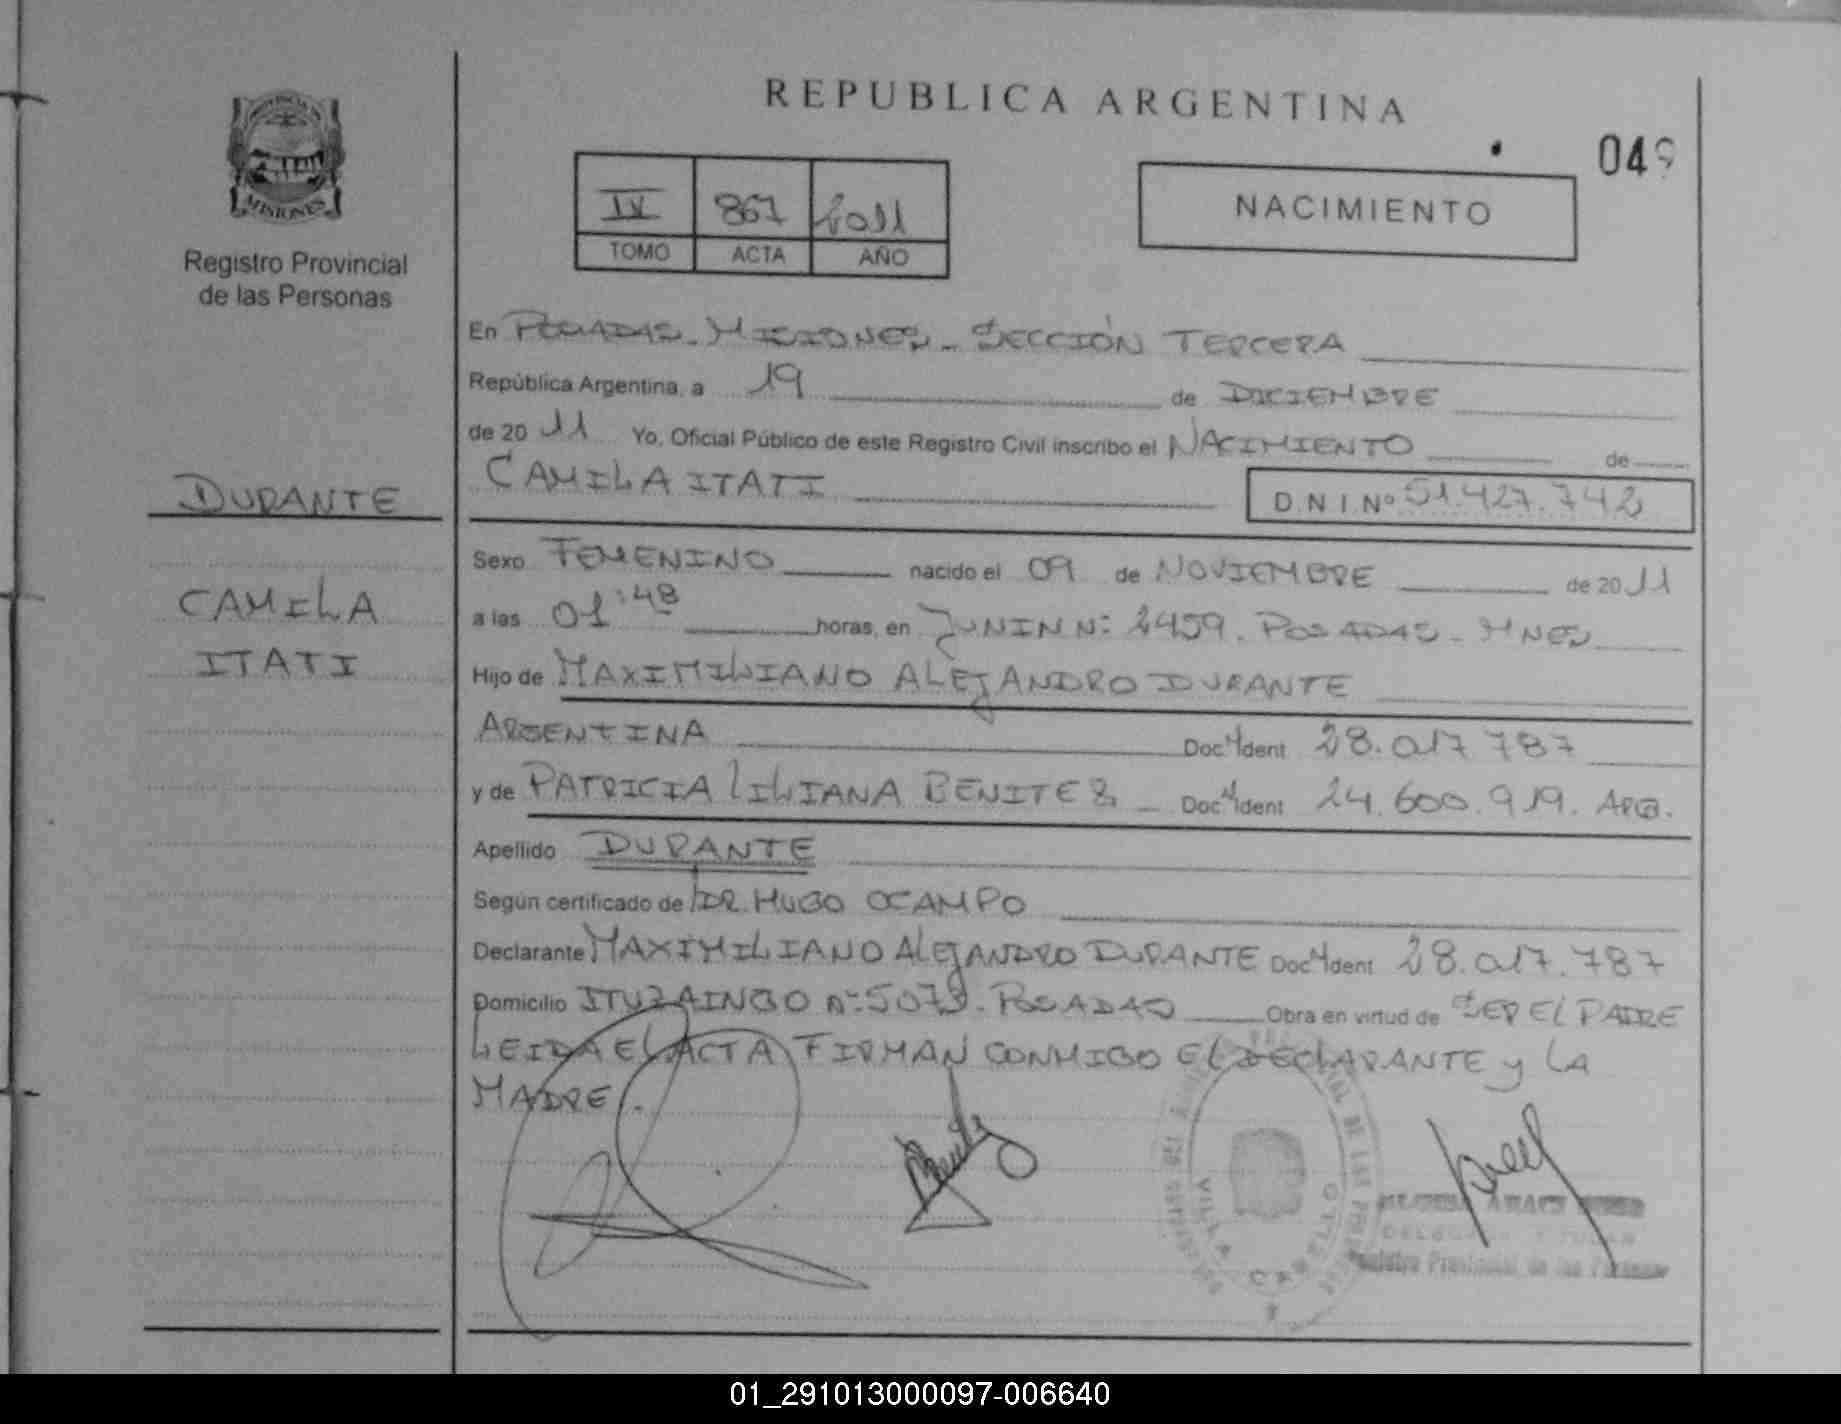 REPUBLICA ARGENTINA
049
PROVINCIA
MISIONES
Registro Provincial
de las Personas
IV 867 2011
TOMO ACTA AÑO
NACIMIENTO
En POSADAS - MISIONES - SECCIÓN TERCERA
República Argentina, a 19 de DICIEMBRE
de 20 11 Yo, Oficial Público de este Registro Civil inscribo el NACIMIENTO de
CAMILA ITATI D.N.I.Nº 51.427.742
DURANTE
CAMILA
ITATI
Sexo FEMENINO nacido el 09 de NOVIEMBRE de 20 11
a las 01:48 horas, en JUNIN Nº 2459. POSADAS - MNES
Hijo de MAXIMILIANO ALEJANDRO DURANTE
ARGENTINA Doc. Ident 28.017 787
y de PATRICIA LILIANA BENITEZ - Doc. Ident 24.600.919. ARG.
Apellido DURANTE
Según certificado de DR. HUGO OCAMPO
Declarante MAXIMILIANO ALEJANDRO DURANTE Doc. Ident 28.017.787
Domicilio ITUZAINGO Nº 5073. POSADAS Obra en virtud de SER EL PADRE
LEIDA EL ACTA FIRMAN CONMIGO EL DECLARANTE y LA
MADRE.
VILLA
Registro Provincial de las Personas
01_291013000097-006640